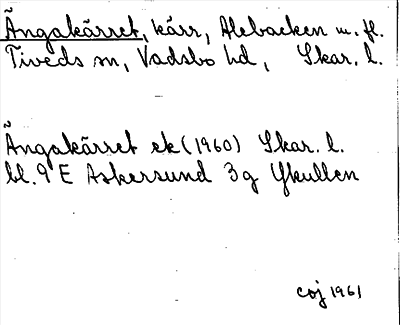 Ängakärret, kärr, Alebacken m. fl.
Tiveds sn, Vadsbo hd, Skar. l.
Ängakärret ek (1960) Skar. l.
bl. 9 E Askersund 3g Ykullen
coj 1961